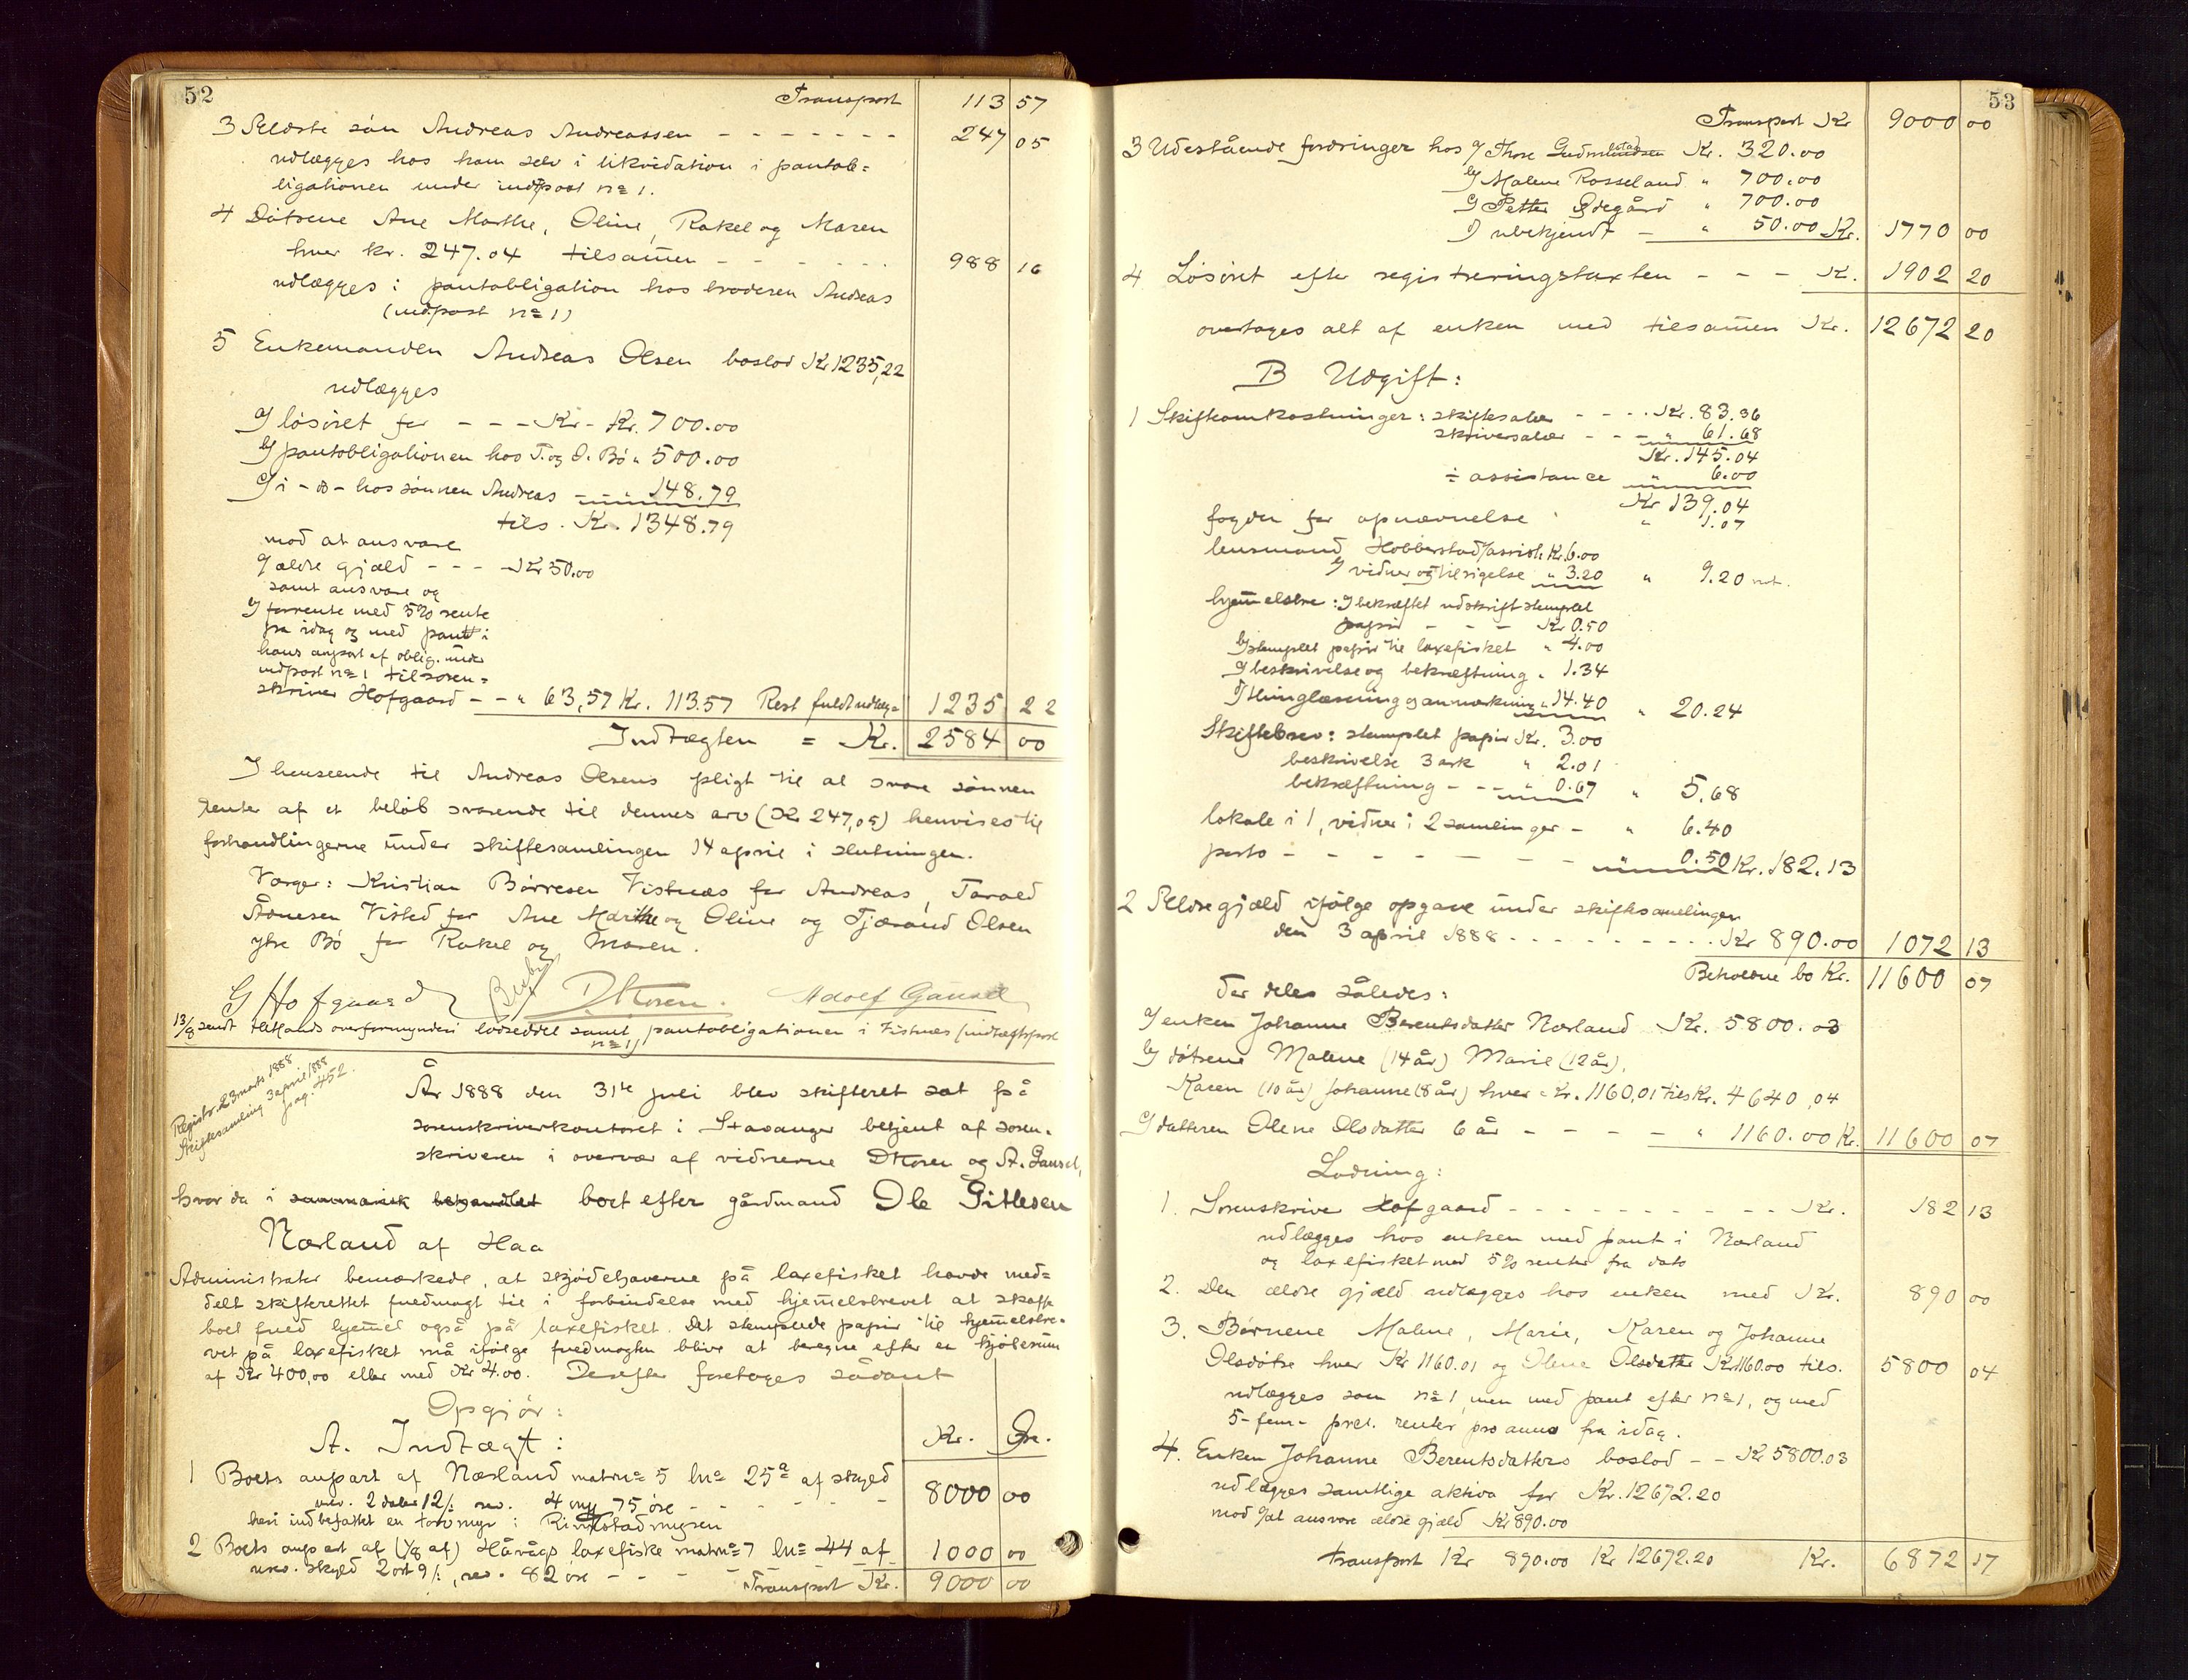 52
Transport 113 57
3 Ældste søn Andreas Andreassen - - - - - - - 247 05
udlægges hos ham selv i likvidation i pantob=
ligationen under indtpost no 1.
4 Døtrene Ane Marthe, Oline, Rakel og Maren
hver kr. 247.04 tilsamen - - - - - - 988 16
udlægges i pantobligation hos broderen Andreas
(indpost no 1)
5 Enkemanden Andreas Olsen boslod Kr 1235,22
udlægges
a/ løsøret for - - - Kr - Kr. 700.00
b/ pantobligationen hos T. og O. Bø " 500.00
c/ i - do - hos sønnen Andreas - - - 148.79
tils. Kr. 1348.79
mod at ansvare
a/ ældre gjæld - - - Kr 50.00
samt ansvare og
b/ forrente med 5% rente
fra idag og med pant i
hans anpart af oblig. under
indpost no 1 til soren=
skriver Hofgaard - - " 63,57 Kr. 113.57 Rest fuldt udlæg= 1235 22
Indtægten = Kr. 2584 00
I henseende til Andreas Olsens pligt til at svare sønnen
renter af et beløb svarende til dennes arv (Kr 247,05) henvises til
forhandlingerne under skiftesamlingen 14 april i slutningen.
Værger: Kristian Børresen Vistnæs for Andreas, Tarald
Aanesen Visted for Ane Marthe og Oline og Tjærand Olsen
ytre Bø for Rakel og Maren.
G Hofgaard DKoren. Adolf Gausel
13/8 sendt Hetlands overformynderi lodseddel samt pantobligationen i Vistnæs (indtægtspost
no 1)
Registr. 23 marts 1888
Skiftesamling 3 april 1888
pag. 452.
År 1888 den 31te juli blev skifteret sat på
sorenskriverkontoret i Stavanger betjent af soren-
skriveren i overvær af vidnerne DKoren og A. Gausel,
hvor da i summarisk behandlet boet efter gårdmand Ole Gitlesen
Nærland af Haa
Administrator bemærkede, at skjødehaverne på laxefisket havde med=
delt skifteretten fuldmagt til i forbindelse med hjemelsbrevet at skaffe
boet fuld hjemel også på laxefisket. Det stemplede papir til hjemelsbre-
vet på laxefisket må ifølge fuldmagten blive at beregne efter en kjøbesum
af Kr 400,00 eller med Kr 4.00. Derefter foretoges sådant
Opgjør:
A. Indtægt: Kr. Øre.
1 Boets anpart af Nærland matrno 5 lno 25a af skyld
urev. 2 daler 12 /: rev. 4 my 75 øre - - - - - - 8000 00
heri indbefattet en torvmyr i Ringstadmyren
2 Boets anpart af (1/8 af) Håvågs laxefiske matrno 7 lno 44 af 1000 00
urev. skyld 2 ort 9 /:, rev. 82 øre - - - -
Transport Kr. 9000 00
53
Transport Kr 9000 00
3 Udestående fordringer hos a/ Thore Gudmundsen Kr. 320.00
b/ Malene Rosseland " 700.00
c/ Petter Ødegård " 700.00
d/ ubekjendt - " 50.00 Kr. 1770 00
4 Løsøret efter registreringstaxten - - - Kr. 1902 20
overtages alt af enken med tilsamen Kr. 12672 20
B Udgift:
1 Skifteomkostninger: skiftesalær - - - Kr. 83.36
skriversalær - - - " 61.68
Kr. 145.04
÷ assistance " 6.00
Kr 139.04
fogden for opnævnelse " 1.07
lensmand Hobberstad a/ assist. Kr. 6.00
b/ vidner og tilsigelse " 3.20 " 9.20 not.
hjemelsbre: a/ bekræftet udskrift stemplet
papir - - - Kr 0.50
b/ stemplet papir til laxefisket " 4.00
c/ beskrivelse og bekræftning " 1.34
d/ thinglæsning og anmærkning " 14.40 " 20.24
Skiftebrev: stemplet papir Kr. 3.00
beskrivelse 3 ark " 2.01
bekræftning - - - " 0.67 " 5,68
lokale i 1, vidner i 2 samlinger - " 6.40
porto - - - - - - - " 0.50 Kr. 182.13
2 Ældre gjæld ifølge opgave under skiftesamlingen
den 3 april 1888 - - - - - - - - - Kr 890.00 1072 13
Beholdne bo Kr. 11600 07
der deles således:
a/ enken Johanne Berentsdatter Nærland Kr. 5800.03
b/ døtrene Malene (14 år) Marie (12 år),
Karen (10 år) Johanne (8 år) hver Kr. 1160,01 tils Kr. 4640,04
c/ datteren Olene Olsdatter 6 år - - - - " 1160.00 Kr. 11600 07
Lodning:
1. Sorenskriver Hofgaard - - - - - - - - - Kr. 182 13
udlægges hos enken med pant i Nærland
og laxefisket med 5% renter fra dato
2. Den ældre gjæld udlægges hos enken med Kr. 890 00
3. Børnene Malene, Marie, Karen og Johanne
Olsdøtre hver Kr 1160.01 og Olene Olsdatter Kr 1160.00 tils. 5800 04
udlægges som no 1, men med pant efter no 1, og med
5 - fem - prct. renter pro anno fra idag.
4. Enken Johanne Berentsdatters boslod - - Kr 5800.03
udlægges samtlige aktiva for Kr. 12672.20
mod a/ at ansvare ældre gjæld Kr 890.00
transport Kr 890.00 Kr 12672.20 Kr. 6872 17